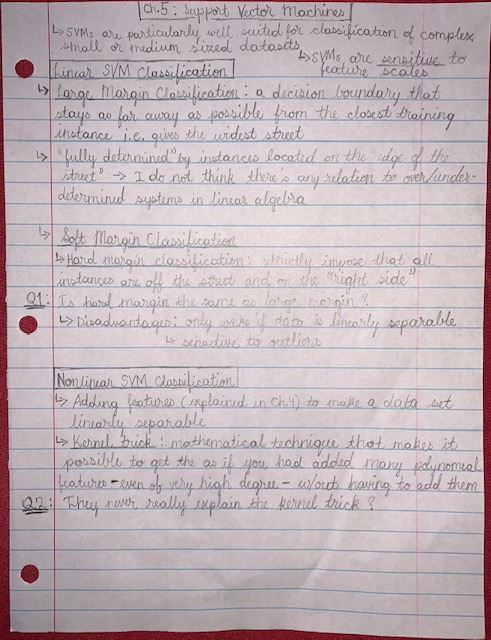 Ch.5: Support Vector Machines
↳ SVMs are particularly well suited for classification of complex,
small or medium sized datasets
↳ SVMs are sensitive to
feature scales
Linear SVM Classification
↳ Large Margin Classification: a decision boundary that
stays as far away as possible from the closest training
instance i.e. gives the widest street
↳ "fully determined" by instances located on the "edge of the
street" → I do not think there's any relation to over/under-
determined systems in linear algebra
↳ Soft Margin Classification
↳ Hard margin classification: strictly impose that all
instances are off the street and on the "right side"
Q1: Is hard margin the same as large margin?
↳ Disadvantages: only works if data is linearly separable
↳ sensitive to outliers
Nonlinear SVM Classification
↳ Adding features (explained in Ch4) to make a data set
linearly separable
↳ Kernel trick: mathematical technique that makes it
possible to get the as if you had added many polynomial
features - even of very high degree - w/out having to add them
Q2: They never really explain the kernel trick?